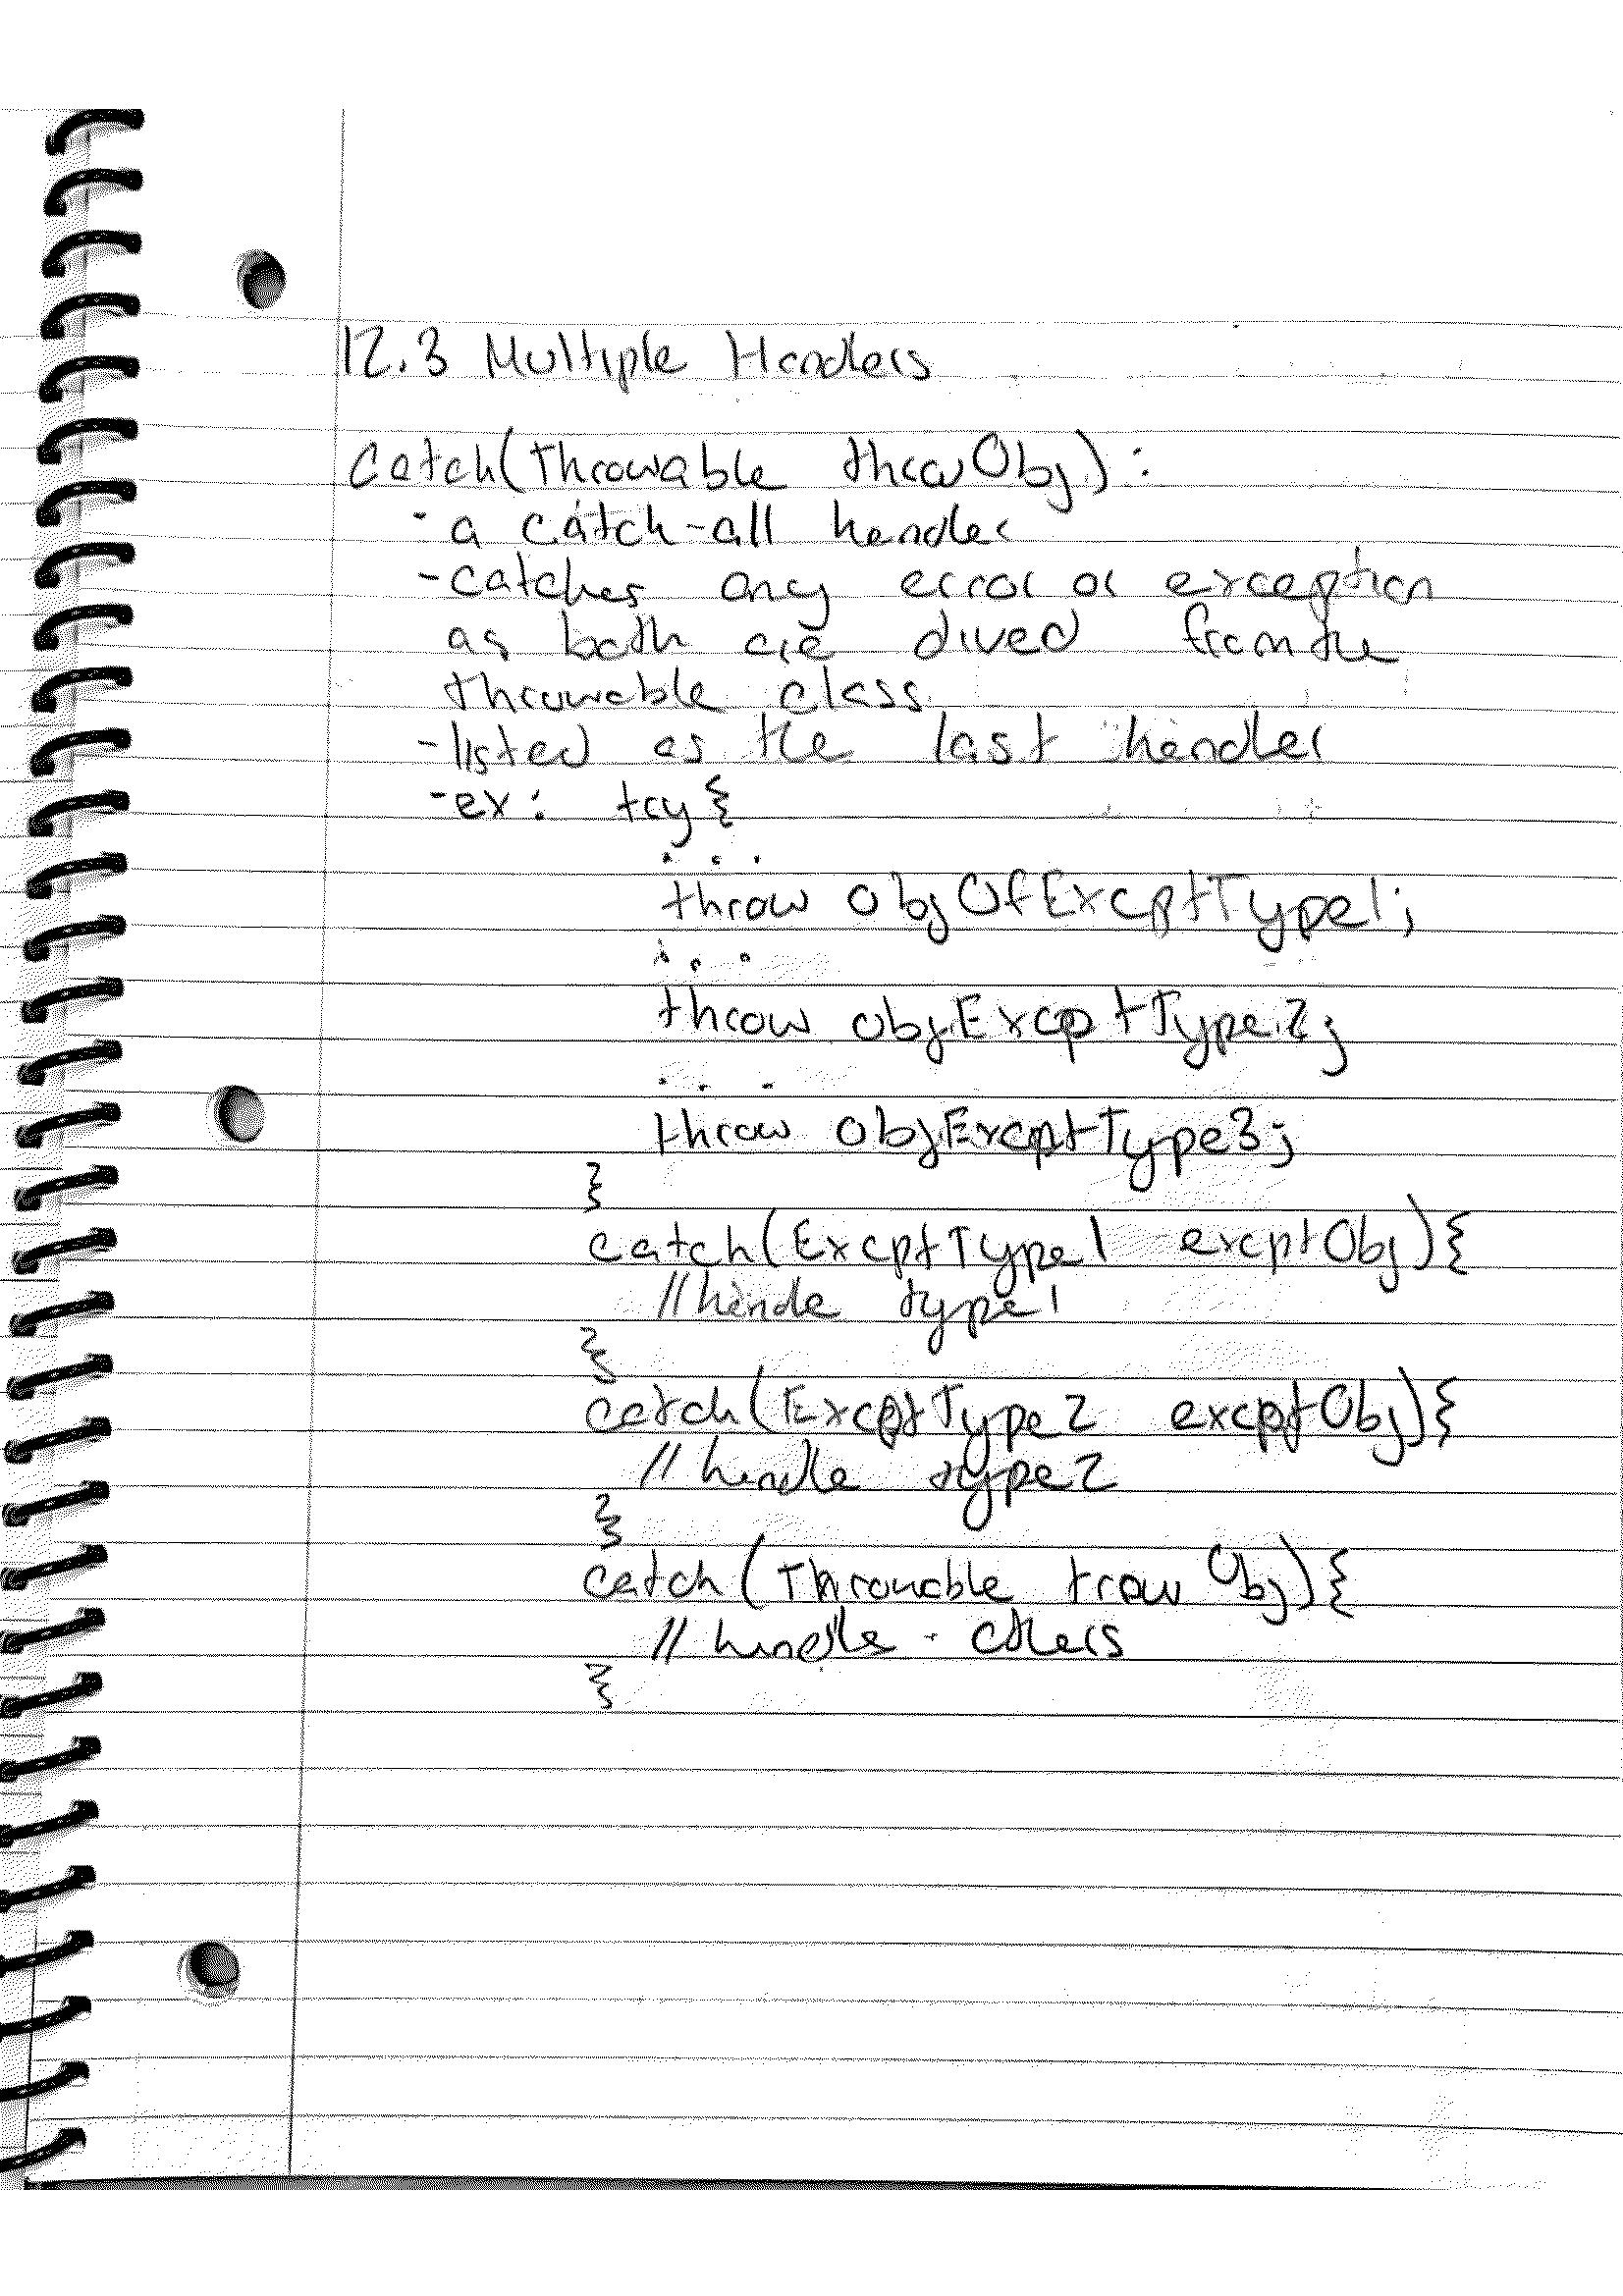 12.3 Multiple Handlers
catch(Throwable throwObj):
- a catch-all handler
- catches any error or exception
as both are dived from the
throwable class
- listed as the last handler
- ex: try{
...
throw objOfExcptType1;
...
throw objExcptType2;
...
throw objExcptType3;
}
catch(ExcptType1 excptObj){
//handle type1
}
catch(ExcptType2 excptObj){
// handle type2
}
catch(Throwable trowObj){
// handle others
}